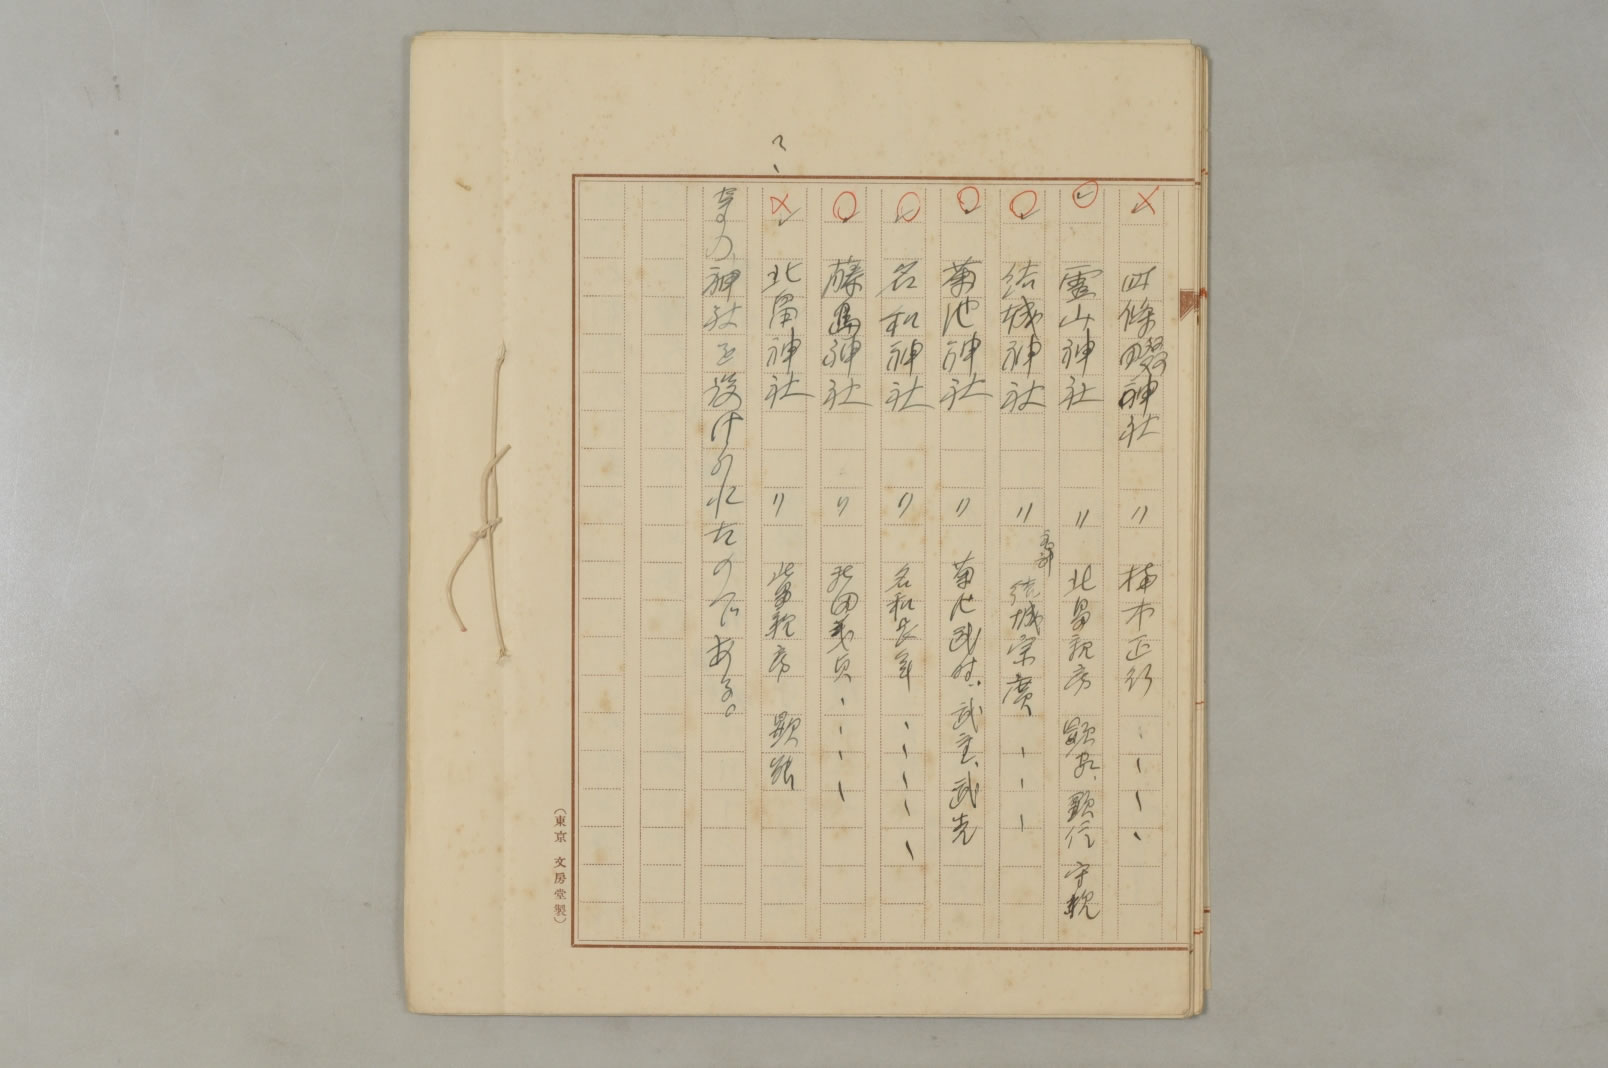 × 四條畷神社 〃 楠木正行、、、、
○ 霊山神社 〃 北畠親房 顕家、顕信 守親
○ 結城神社 〃 結城宗廣、、、
○ 菊池神社 〃 菊池武時、武重、武光
○ 名和神社 〃 名和長年、、、、、
○ 藤島神社 〃 新田義貞、、、、
× 北畠神社 〃 北畠親房 顕能
等の神社を設けられたのである。
(東京 文房堂製)